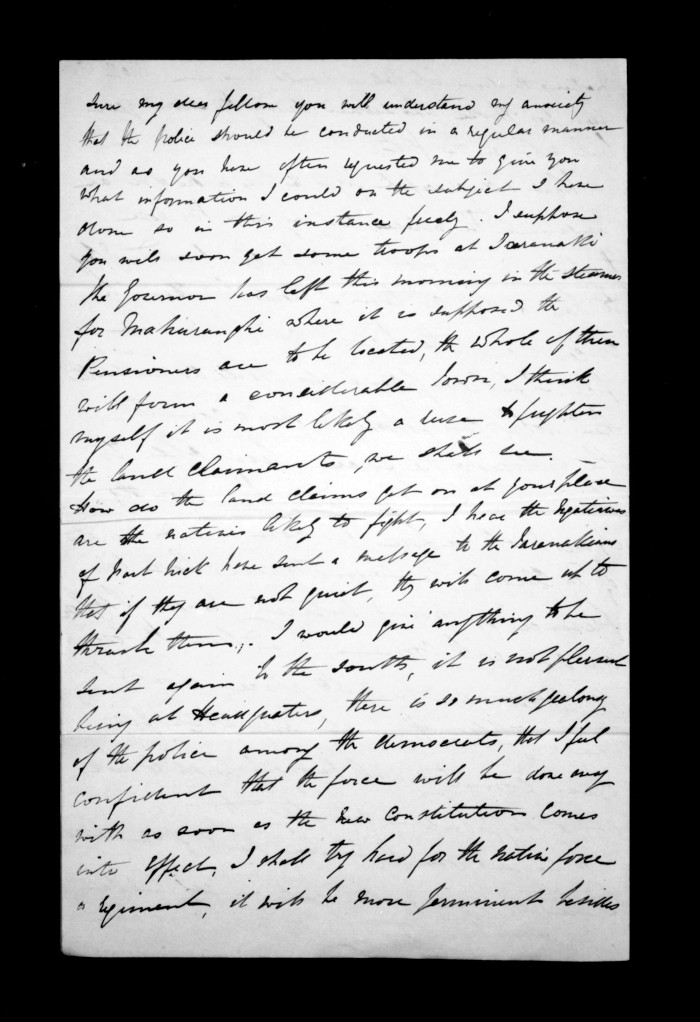 sure my dear fellow you will understand my anxiety
that the police should be conducted in a regular manner
and as you have often requested me to give you
what information I could on the subject I have
done so in this instance freely. I suppose
you will soon get some troops at Taranaki
The Governor has left this morning in the steamer
for Mahurangi where it is supposed the
Pensioners are to be located, the whole of them
will form a considerable town, I think
myself it is most likely a ruse to frighten
the land claimants, we shall see. –
How do the land claims get on at your place
are the natives likely to fight, I hear the
of Port Nick have sent a message to the Taranakians
that if they are not quiet, they will come up to
thrash them,. I would give anything to be
sent again to the south, it is not pleasant
being at Headquaters, there is so much jealousy
of the police among the democrats, that I feel
confident that the force will be done away
with as soon as the new constitution comes
into effect, I shall try hard for the native force
a regiment, it will be more permanent besides